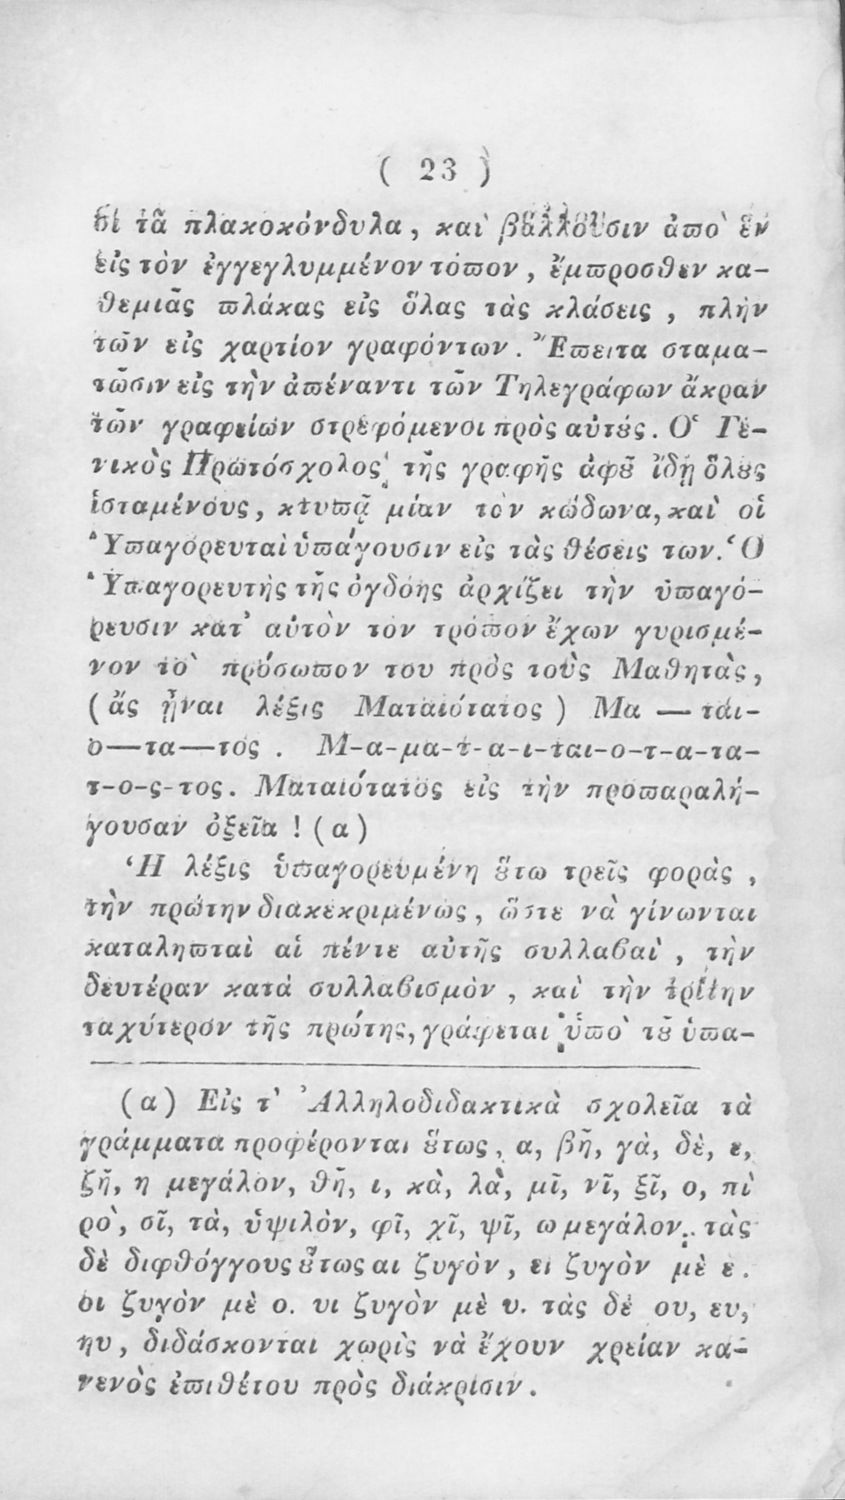 ( 23 )
οἱ τὰ πλακοκόνδυλα, καὶ βάλλȣσιν ἀπὸ ἓν
εἰς τὸν ἐγγεγλυμμένον τόπον, ἔμπροσθεν κα-
θεμιᾶς πλάκας εἰς ὅλας τὰς κλάσεις, πλὴν
τῶν εἰς χαρτίον γραφόντων. Ἔπειτα σταμα-
τῶσιν εἰς τὴν ἀπέναντι τῶν Τηλεγράφων ἄκραν
τῶν γραφείων στρεφόμενοι πρὸς αὐτȣ́ς. Ὁ Γε-
νικὸς Πρωτόσχολος τῆς γραφῆς ἀφȣ͂ ἴδῃ ὅλȣς
ἱσταμένους, κτυπᾷ μίαν τὸν κώδωνα, καὶ οἱ
Ὑπαγορευταὶ ὑπάγουσιν εἰς τὰς θέσεις των. Ὁ
Ὑπαγορευτὴς τῆς ὀγδόης ἀρχίζει τὴν ὑπαγό-
ρευσιν κατ' αὐτὸν τὸν τρόπον ἔχων γυρισμέ-
νον τὸ πρόσωπον του πρὸς τοὺς Μαθητὰς,
(ἂς ᾖναι λέξις Ματαιότατος) Μα — ται-
ο—τα—τος. Μ-α-μα-τ-α-ι-ται-ο-τ-α-τα-
τ-ο-ς-τος. Ματαιότατος εἰς τὴν προπαραλή-
γουσαν ὀξεῖα ! (α)
Ἡ λέξις ὑπαγορευμένη ȣ̔́τω τρεῖς φορὰς,
τὴν πρώτην διακεκριμένως, ὥστε νὰ γίνωνται
καταληπταὶ αἱ πέντε αὐτῆς συλλαβαὶ, τὴν
δευτέραν κατὰ συλλαβισμὸν, καὶ τὴν τρίτην
ταχύτερον τῆς πρώτης, γράφεται ὑπὸ τȣ͂ ὑπα-
(α) Εἰς τ' Ἀλληλοδιδακτικὰ σχολεῖα τὰ
γράμματα προφέρονται ȣ̔́τως, α, βῆ, γὰ, δὲ, ε,
ζῆ, η μεγάλον, θῆ, ι, κὰ, λὰ, μῖ, νῖ, ξῖ, ο, πὶ
ρὸ, σῖ, τὰ, ὑψιλὸν, φῖ, χῖ, ψῖ, ω μεγάλον. τὰς
δὲ διφθόγγους ȣ̔́τως αι ζυγὸν, ει ζυγὸν μὲ ε.
οι ζυγὸν μὲ ο. υι ζυγὸν μὲ υ. τὰς δὲ ου, ευ,
ηυ, διδάσκονται χωρὶς νὰ ἔχουν χρείαν κα-
νενὸς ἐπιθέτου πρὸς διάκρισιν.